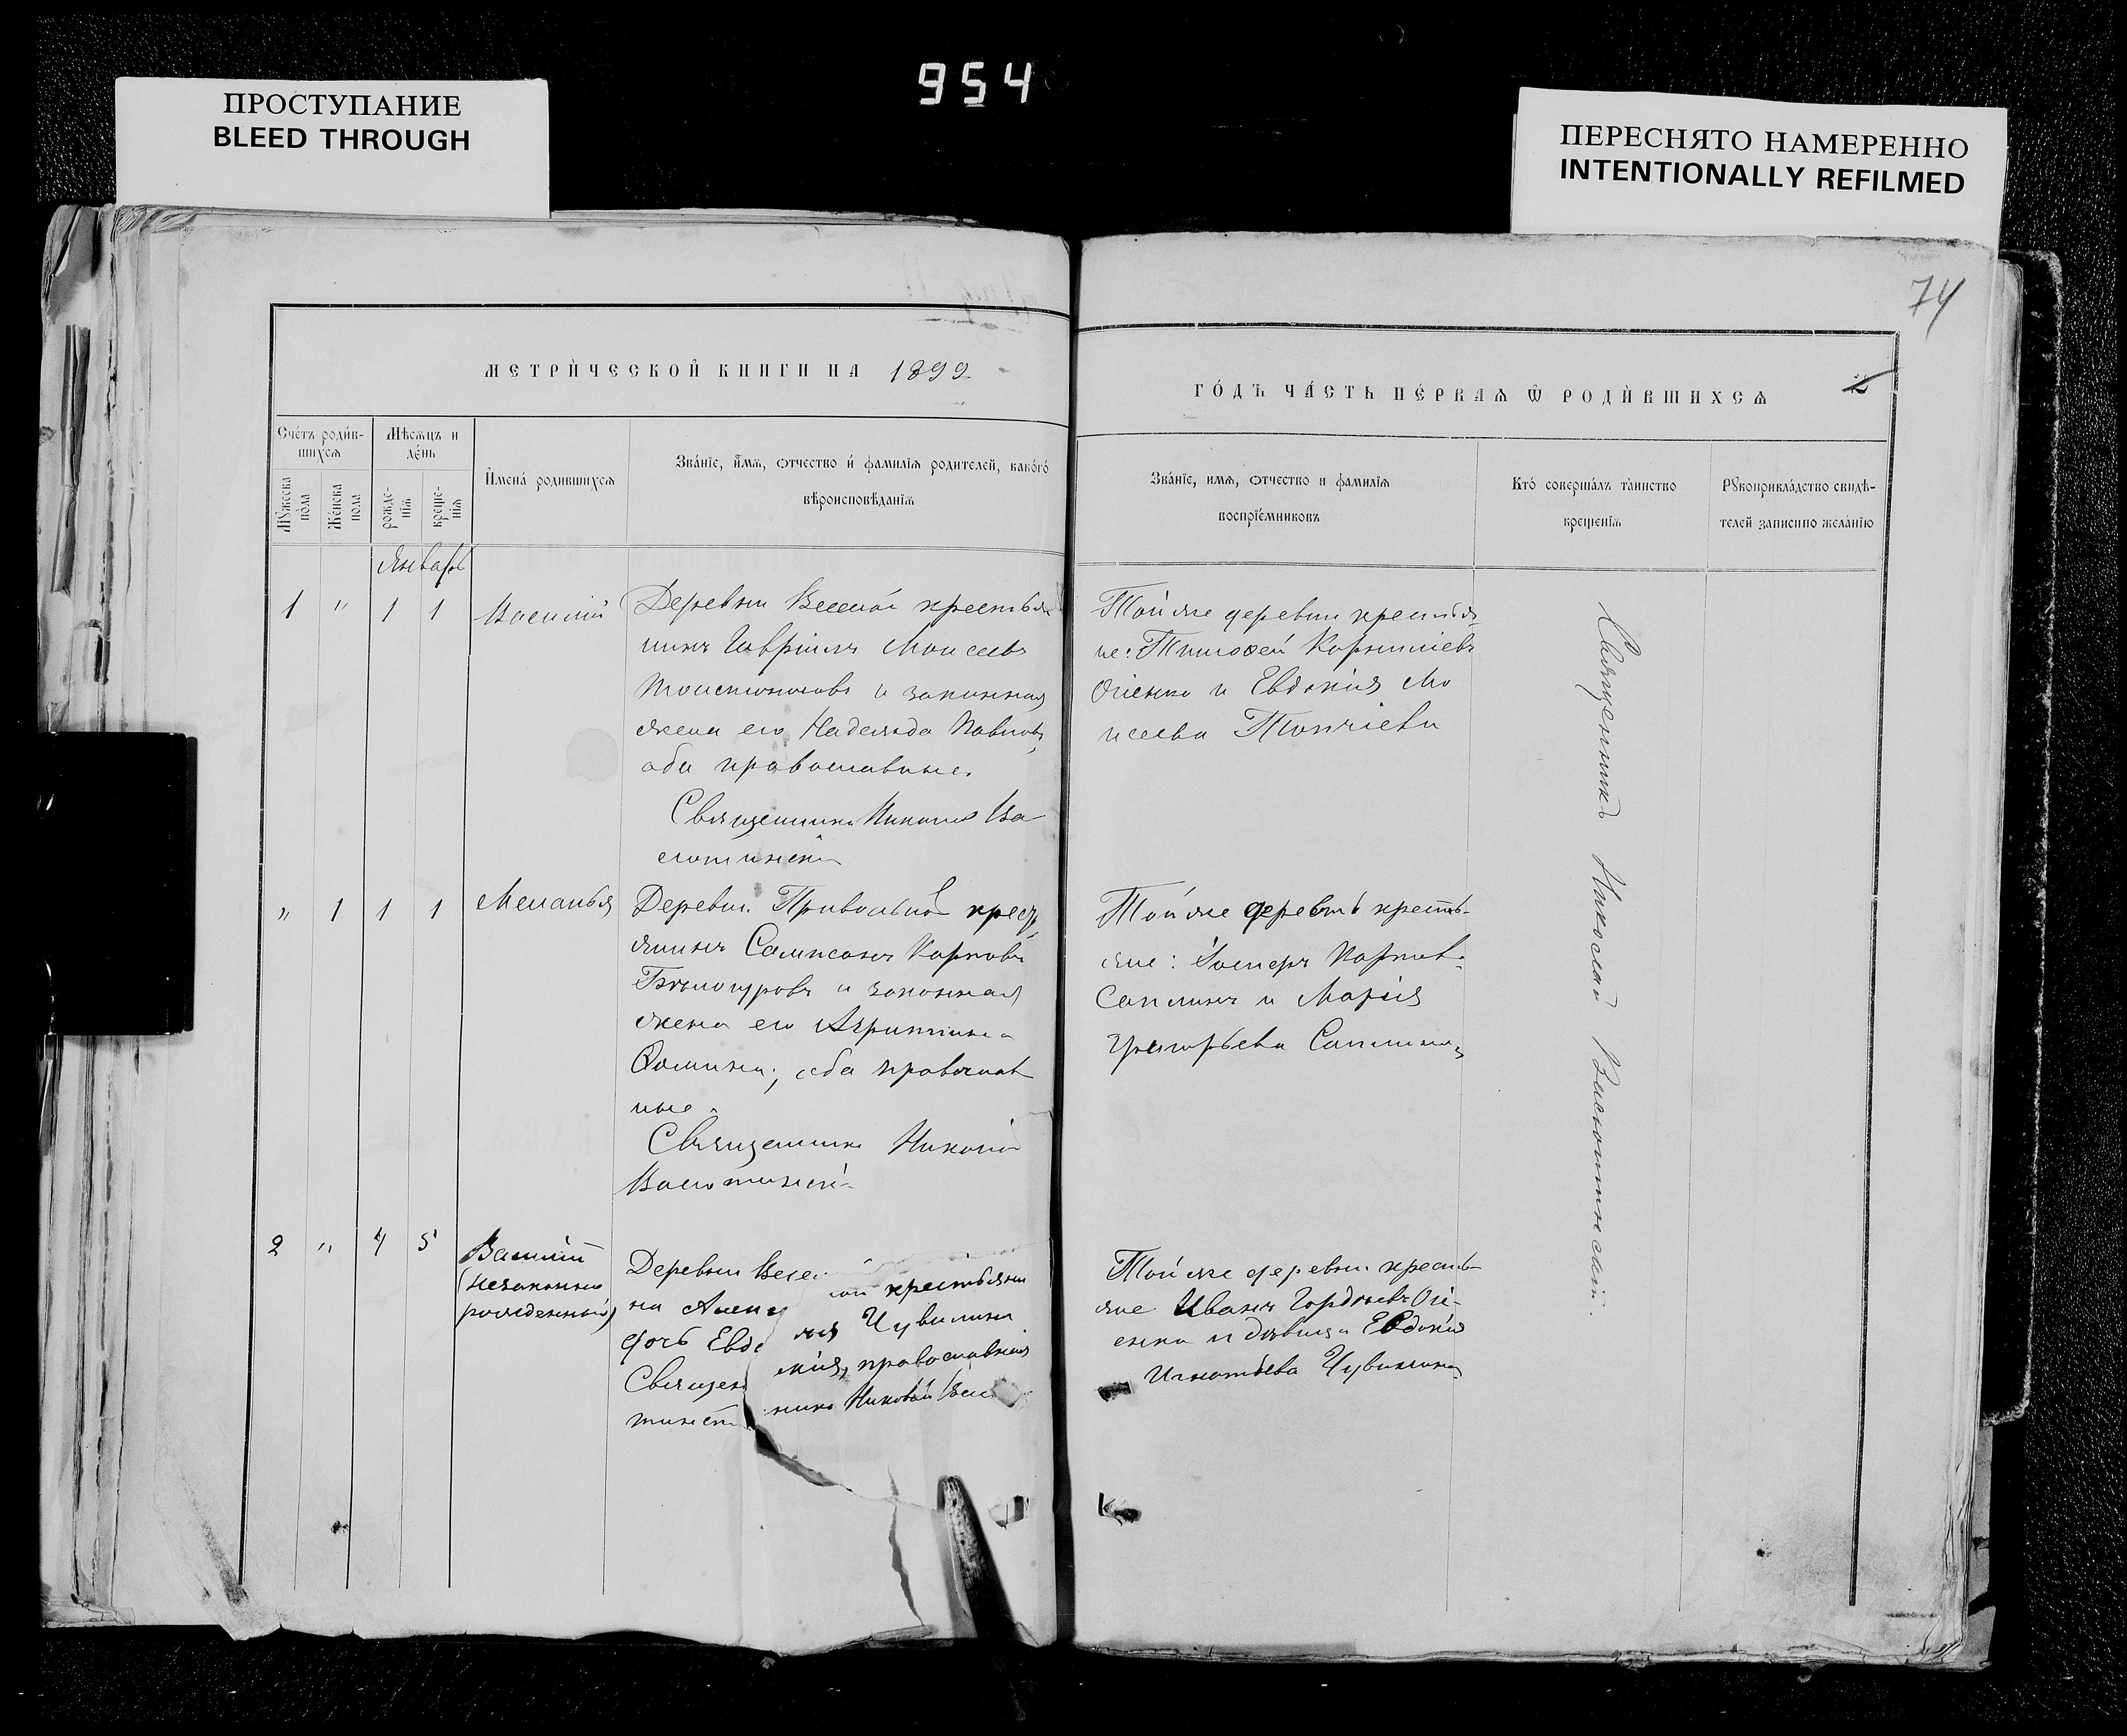 954
ПРОСТУПАНИЕ
BLEED THROUGH
ПЕРЕСНЯТО НАМЕРЕННО
INTENTIONALLY REFILMED
74
МЕТРИ́ЧЕСКОЙ КНИГИ НА 1899
ГО́ДЪ ЧА́СТЬ ПЕ́РВАЯ Ѿ РОДИ́ВШИХСЯ
2
Сче́тъ роди́в-
шихся
Мꙋжеска по́ла
Же́нска пола
Мѣ́сяцъ и
де́нь
рожде-
нія
креще-
нія
Имена́ родившихся
Зва́ніе, и́мя, ѻтчество и́ фамилія родителей, како́го́
вѣроисповѣ́данія
Зва́ніе, имя, ѻтчество и фамилія
воспріе́мниковъ
Кто́ соверша́лъ та́инство
крещенія
Рꙋкоприкла́дство свидѣ́-
телей записи по жела́нію
Январь
1 " 1 1 Василій
Деревни Веселой крестья
нинъ Гавріилъ Моисеевъ
и законная
жена его Надежда Павлова
оба православные.
Священникъ Николай Вы
сотинскій
Той же деревни крестья
не: Тимоѳей Корниліевъ
Огіенко и Евдокія Мо
исеева
" 1 1 1 Меланья
Деревни Привольной крест
янинъ Сампсонъ Карповъ
Бѣлогуровъ и законная
жена его Агрипина
Ѳомина, оба православ
ные.
Священникъ Николай
Высотинскій
Той же деревни кресть-
яне: Карпов
Саплинъ и Марія
Григорьева Саплина
2 " 4 5 Василій
(незаконно
рожденный)
Деревни Веселой крестьяни
на Чувилина
дочь Евдокія, православная
Священникъ Николай Высо
тинскій
Той же деревни кресть-
яне Иванъ Гордѣевъ Огі-
енко и дѣвица Евдокія
Игнатьева Чувилина
Священникъ Николай Высотинскій.